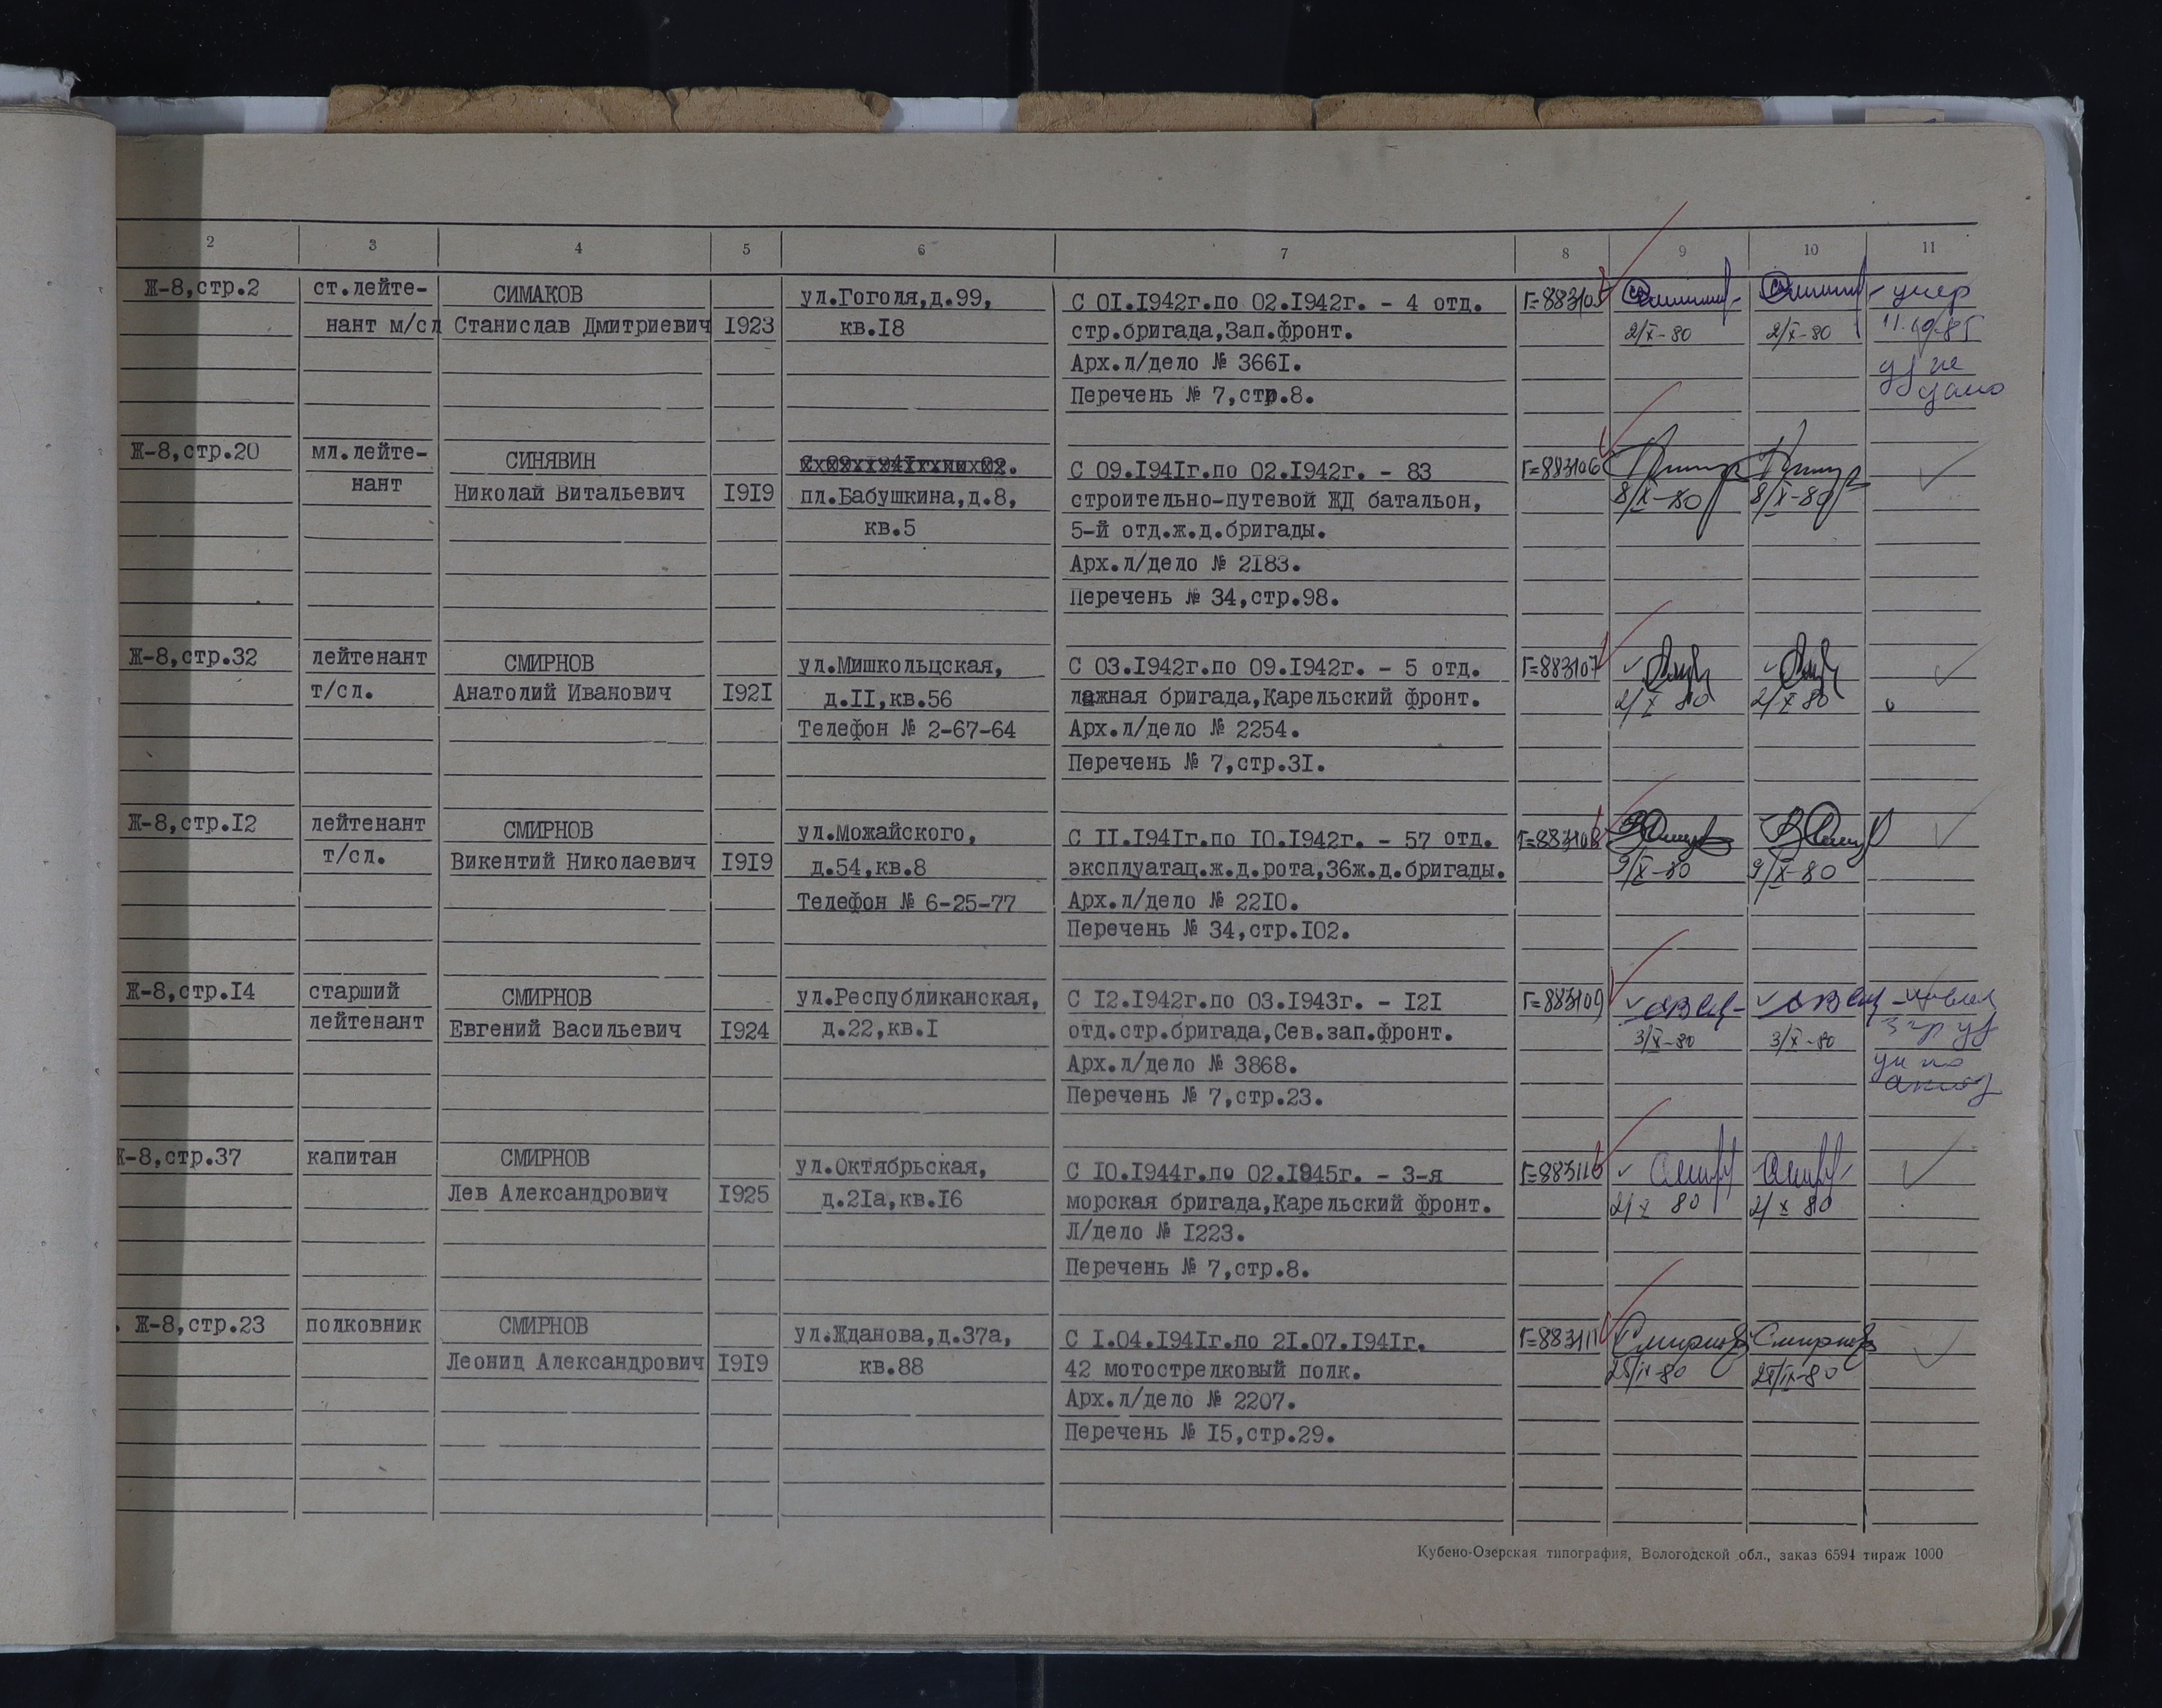 2 3 4 5 6 7 8 9 10 11
Ж-8,стр.2 ст.лейте- СИМАКОВ ул.Гоголя,д.99, С 01.1942г.по 02.1942г. - 4 отд. Г=883105 умер
нант м/сл Станислав Дмитриевич 1923 кв.18 стр.бригада,Зап.фронт. 2/X-80 2/X-80
Арх.л/дело № 3661. не
Перечень № 7,стр.8. дано
Ж-8,стр.20 мл.лейте- СИНЯВИН С 09.1941г.по 02.1942г. - 83 Г=883106
нант Николай Витальевич 1919 пл.Бабушкина,д.8, строительно-путевой ЖД батальон, 8/X-80 8/X-80
кв.5 5-й отд.ж.д.бригады.
Арх.л/дело № 2183.
Перечень № 34,стр.98.
Ж-8,стр.32 лейтенант СМИРНОВ ул.Мишкольцская, С 03.1942г.по 09.1942г. - 5 отд. Г=883107
т/сл. Анатолий Иванович 1921 д.11,кв.56 лыжная бригада,Карельский фронт. 2/X 80 2/X 80
Телефон № 2-67-64 Арх.л/дело № 2254.
Перечень № 7,стр.31.
Ж-8,стр.12 лейтенант СМИРНОВ ул.Можайского, С 11.1941г.по 10.1942г. - 57 отд. Г=883108
т/сл. Викентий Николаевич 1919 д.54,кв.8 эксплуатац.ж.д.рота,36ж.д.бригады. 9/X-80 9/X-80
Телефон № 6-25-77 Арх.л/дело № 2210.
Перечень № 34,стр.102.
Ж-8,стр.14 старший СМИРНОВ ул.Республиканская, С 12.1942г.по 03.1943г. - 121 Г=883109
лейтенант Евгений Васильевич 1924 д.22,кв.1 отд.стр.бригада,Сев.зап.фронт. 3/X-80 3/X-80
Арх.л/дело № 3868.
Перечень № 7,стр.23.
Ж-8,стр.37 капитан СМИРНОВ ул.Октябрьская, С 10.1944г.по 02.1945г. - 3-я Г=883110
Лев Александрович 1925 д.21а,кв.16 морская бригада,Карельский фронт. 2/X 80 2/X 80
Л/дело № 1223.
Перечень № 7,стр.8.
Ж-8,стр.23 полковник СМИРНОВ ул.Жданова,д.37а, С 1.04.1941г.по 21.07.1941г. Г=883111 Смирнов Смирнов
Леонид Александрович 1919 кв.88 42 мотострелковый полк. 25/IX-80 25/IX-80
Арх.л/дело № 2207.
Перечень № 15,стр.29.
Кубено-Озерская типография, Вологодской обл., заказ 6594 тираж 1000